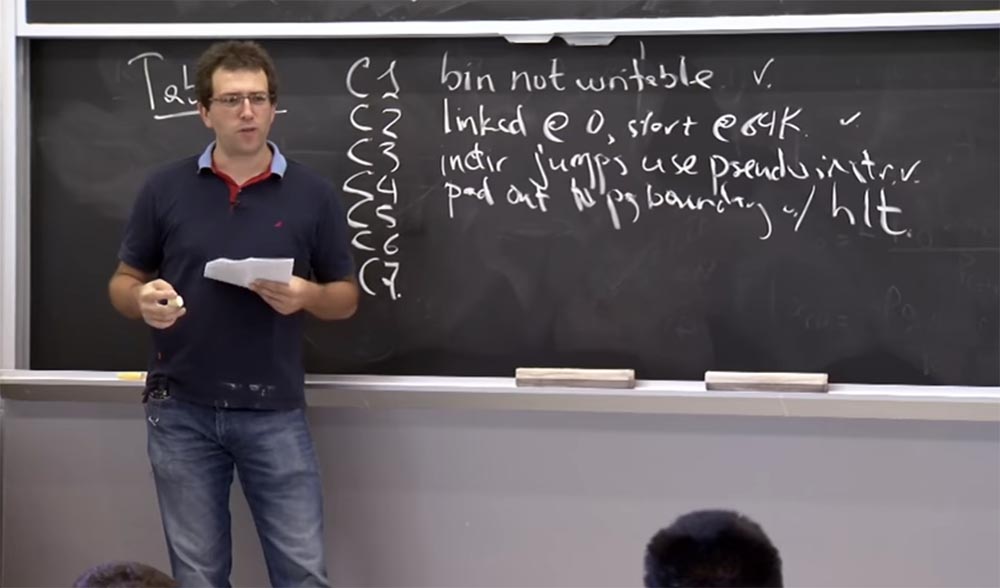 Tab
C1 bin not writable ✓.
C2 linked @ 0, start @ 64K. ✓
C3 indir jumps use pseudoinstr. ✓.
C4 pad out to pg boundary w/ hlt.
C5
C6
C7.